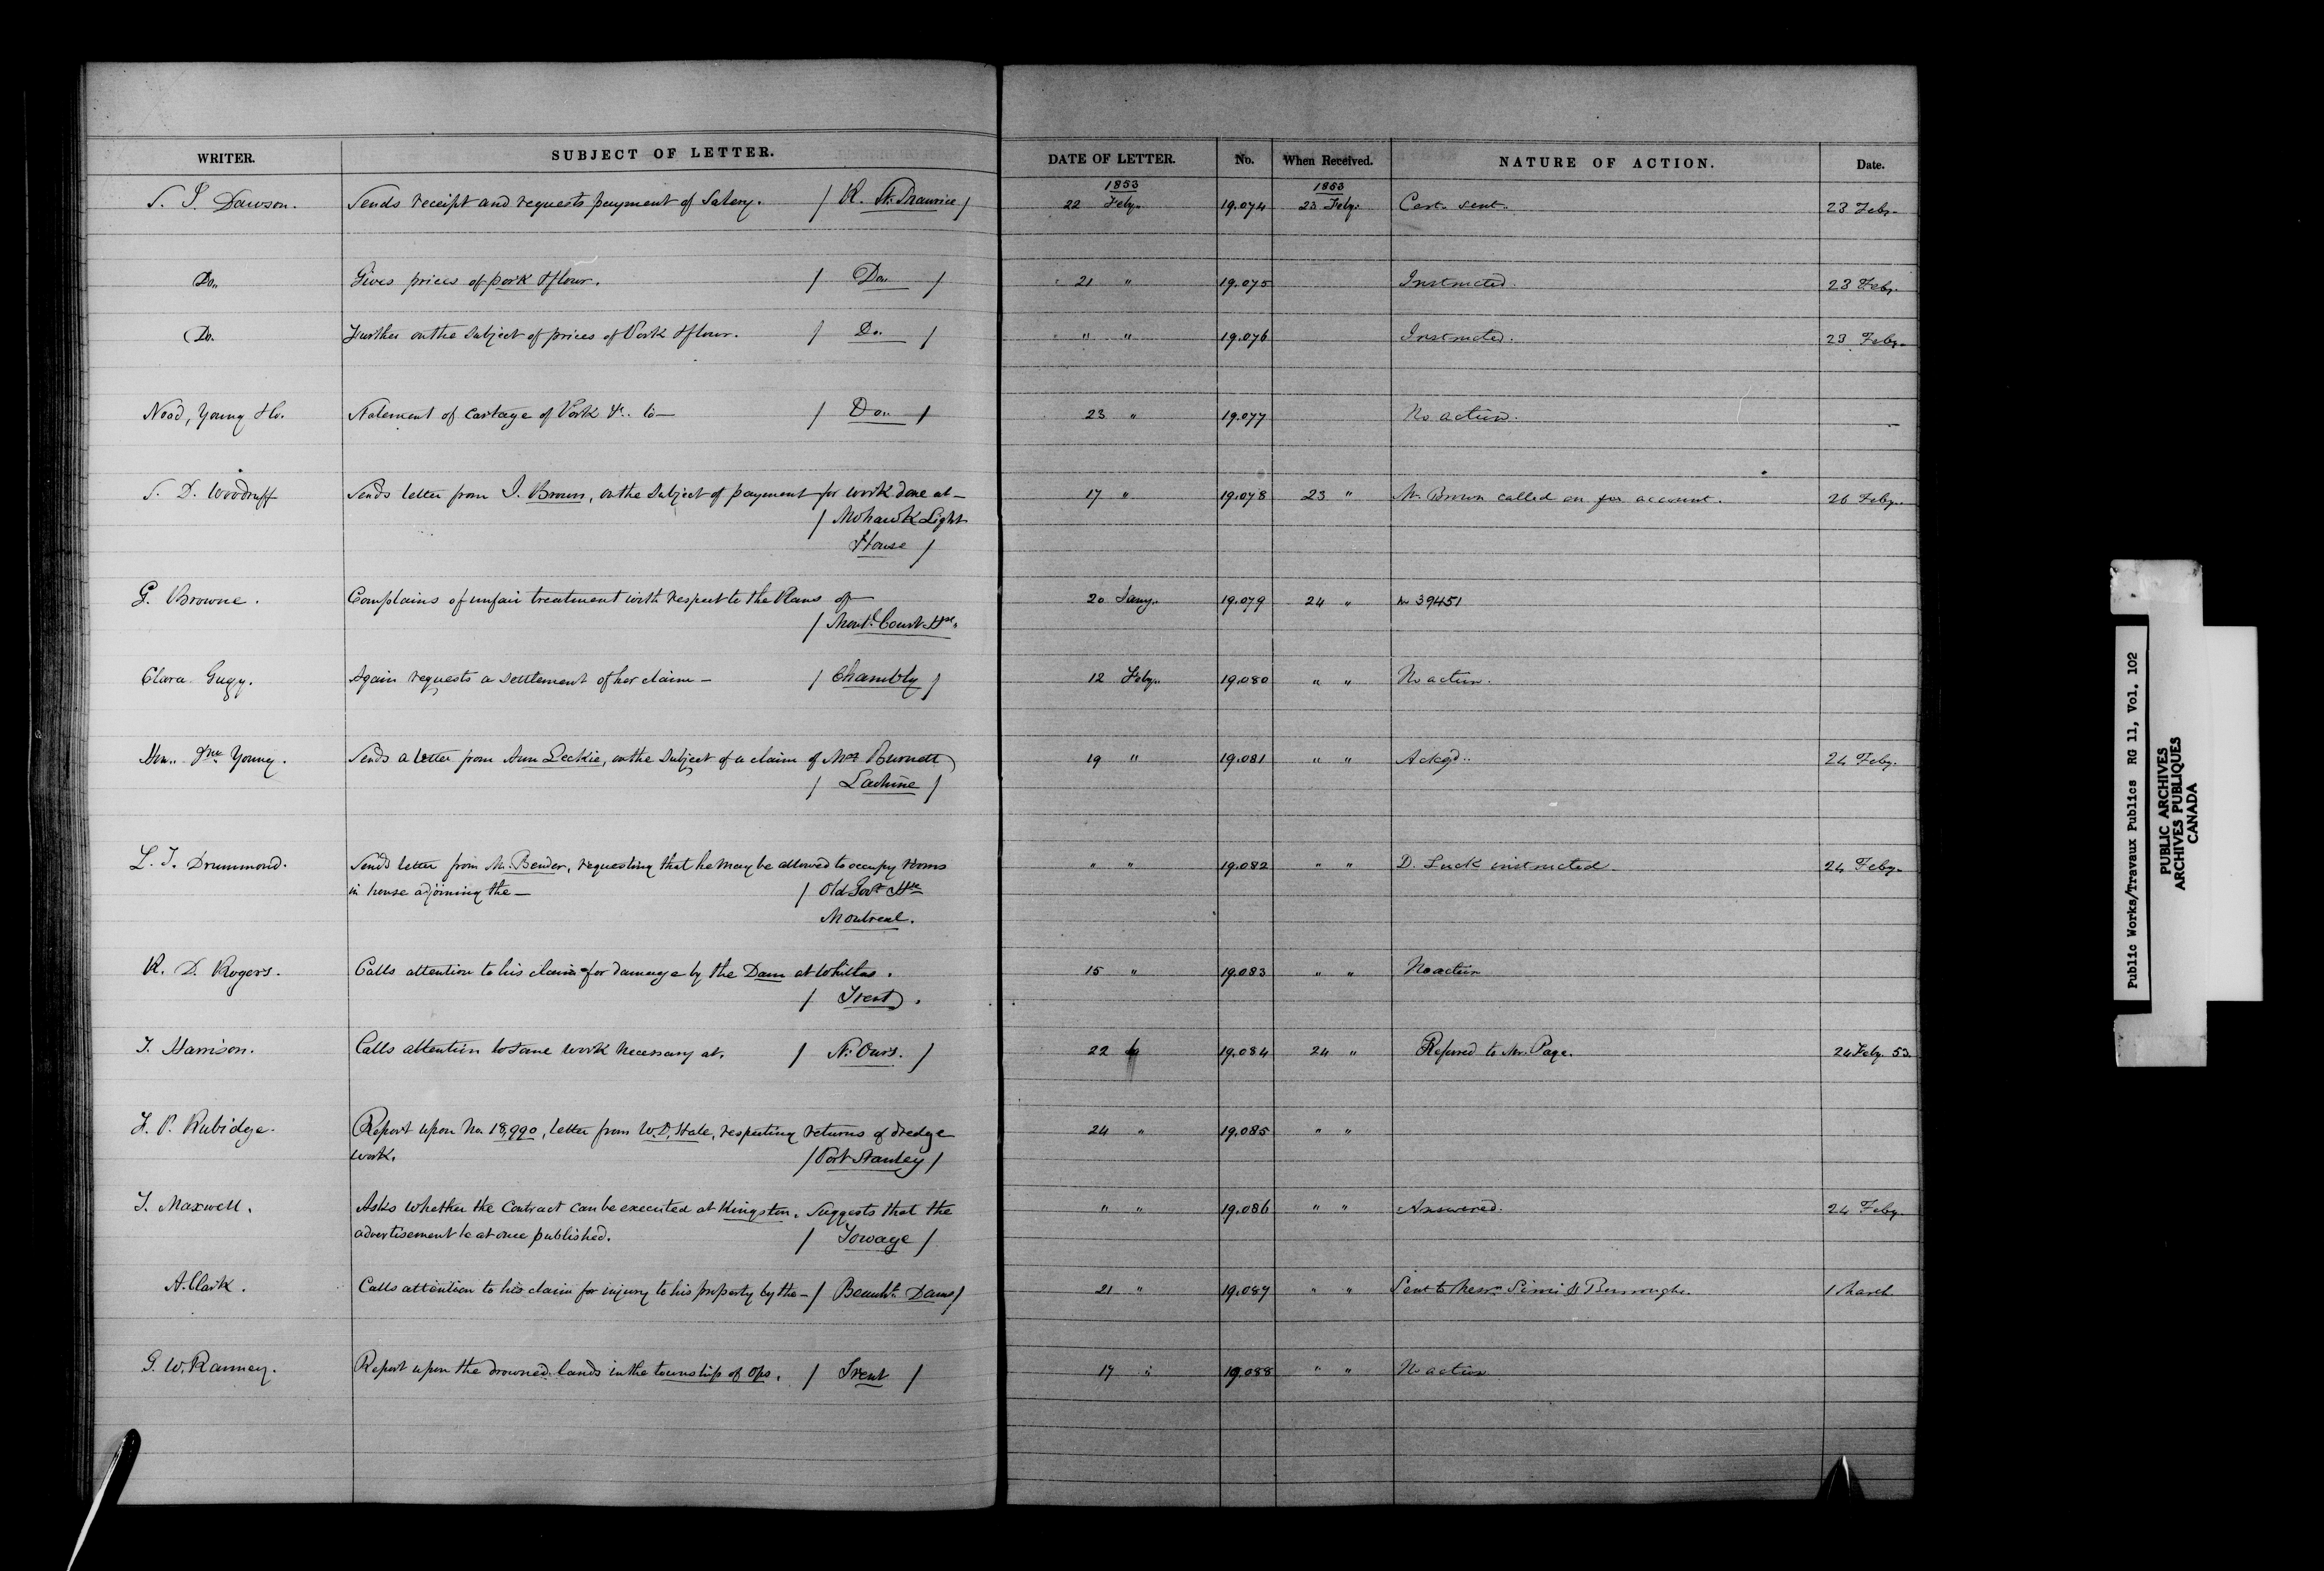 WRITER. SUBJECT OF LETTER. DATE OF LETTER. No. When Received. NATURE OF ACTION. Date.
1853 1853
S. J. Dawson. Sends receipt and requests payment of Salary. / R. St. Maurice / 22 Feby. 19.074 23 Feby. Cert. sent. 23 Feby.
Do. Gives prices of pork & flour. / Do. / 21 " 19.075 Instructed. 23 Feby.
Do. Further on the Subject of prices of Pork & flour. / Do. / " " 19.076 Instructed. 23 Feby.
Young & Co. Statement of Cartage of Pork &c. to — / Do. / 23 " 19.077 No action. —
S. D. Woodruff Sends letter from J. Brown, on the Subject of payment for work done at — 17 " 19.078 23 " Mr. Brown called on for account. 26 Feby.
/ Mohawk Light
House /
G. Browne. Complains of unfair treatment with respect to the Plans of — 20 Jany. 19.079 24 " 39451
/ Montl. Court Hse.
Clara Gugy. Again requests a settlement of her claim — / Chambly / 12 Feby. 19.080 " " No action.
Hon. Jno. Young. Sends a letter from Ann Leckie, on the Subject of a claim of Mrs. Burnett 19 " 19.081 " " Ackgd. 24 Feby.
/ Lachine /
L. T. Drummond. Sends letter from Mr. Bender, requesting that he may be allowed to occupy rooms " " 19.082 " " D. Luck instructed. 24 Feby.
in house adjoining the — / Old Govt. Hse
Montreal.
R. D. Rogers. Calls attention to his claim for damage by the Dam at Whitlas. 15 " 19.083 " " No action
/ Trent.
T. Harrison. Calls attention to some work necessary at. / St. Ours. / 22 19.084 24 " Referred to Mr. Page. 24 Feby. 53.
F. P. Rubidge. Report upon No. 18,990, letter from W. D. Hale, respecting returns of dredge 24 " 19.085 " "
work. / Port Stanley /
T. Maxwell. Asks whether the Contract can be executed at Kingston. Suggests that the " " 19.086 " " Answered. 24 Feby.
advertisement be at once published. / Towage /
A. Clark. Calls attention to his claim for injury to his property by the — / Beauhs. Dams / 21 " 19.087 " " Sent to Messrs. & Burroughs. 1 March
G. W. Ranney. Report upon the drowned lands in the township of Ops. / Trent / 17 " 19.088 " " No action
Public Works/Travaux Publics RG 11, Vol. 102
PUBLIC ARCHIVES
ARCHIVES PUBLIQUES
CANADA